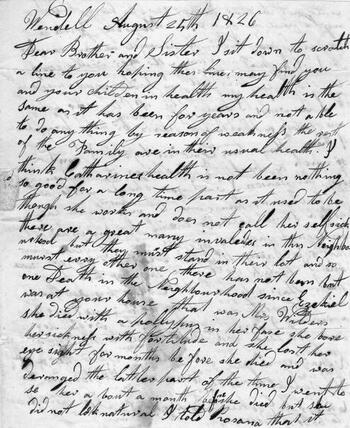 Wendell August 25th 1826
Dear Brother and Sister I sit down to scratch
a line to you hoping these lines may find you
and your children in health my health is the
same as it has been for years and not able
to do any thing by reason of weakness the rest
of the Family are in their usual health I
think Catharines health is not been nothing
so good for a long time past as it used to be
though she works and does not call her self sick
there are a great many invalides in this neighbou
rhood but they must stand in their lot and so
must every other one there has not been but
one Death in the neighbourhood since Ezekiel
was at your house that was Mrs Wilders
she died with a pollypus in her face she bore
her sickness with fortitude and she lost her
eye sight for months before she died and was
deranged the latter part of the time I went to
se her about a month before she died but she
did not look natural I told Rosana that it